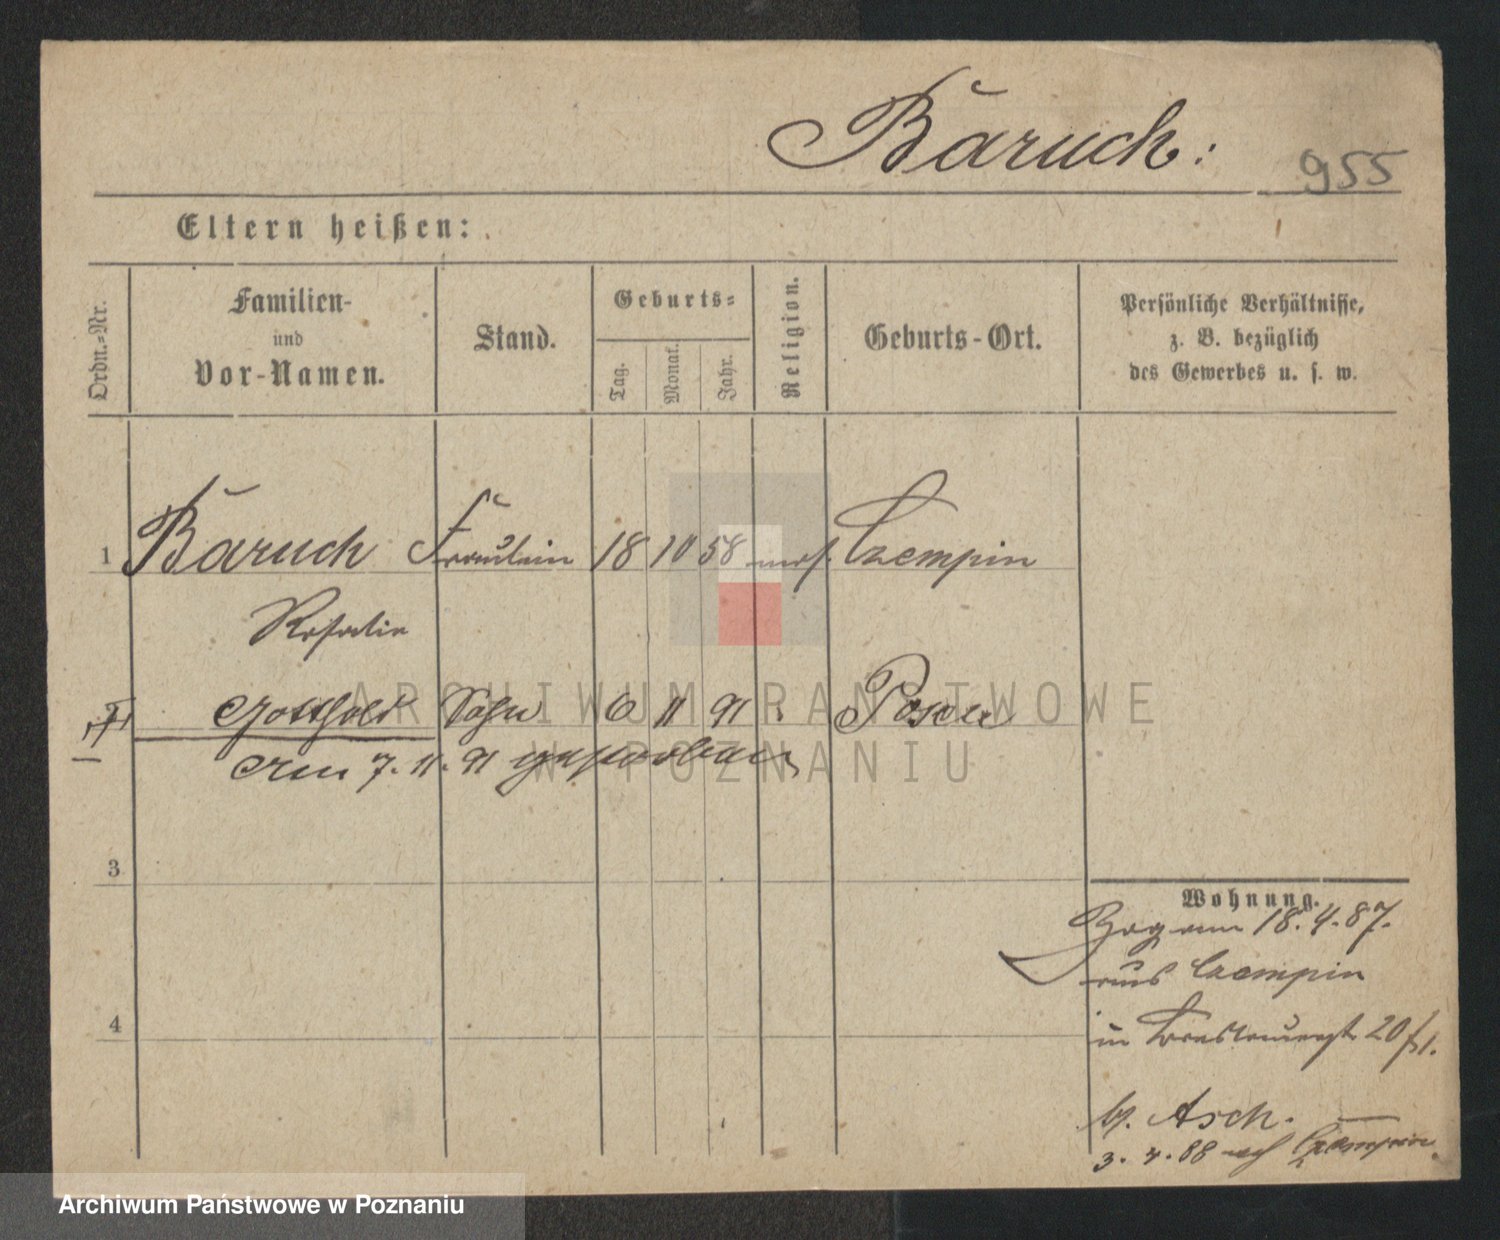 Baruch: 955
Eltern heißen:
Ordn.-Nr.
Familien-
und
Vor-Namen.
Stand.
Geburts-
Tag.
Monat.
Jahr.
Religion.
Geburts-Ort.
Persönliche Verhältnisse,
z. B. bezüglich
des Gewerbes u. s. w.
1 Baruch Fräulein 18 10 58 mos. Czempin
Rosalie
Gotthold Sohn 6 11 91 Posen
Am 7. 11. 91 gestorben
ARCHIWUM PAŃSTWOWE
W POZNANIU
3
4
Wohnung.
Zog am 18. 4. 87.
aus Czempin
in 20
b. Asch.
3. 4. 88 nach Czempin.
Archiwum Państwowe w Poznaniu